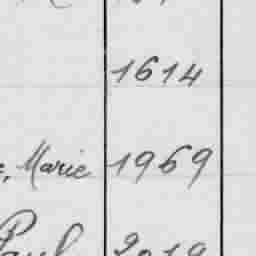 1614
, Marie 1969
Paul 2019